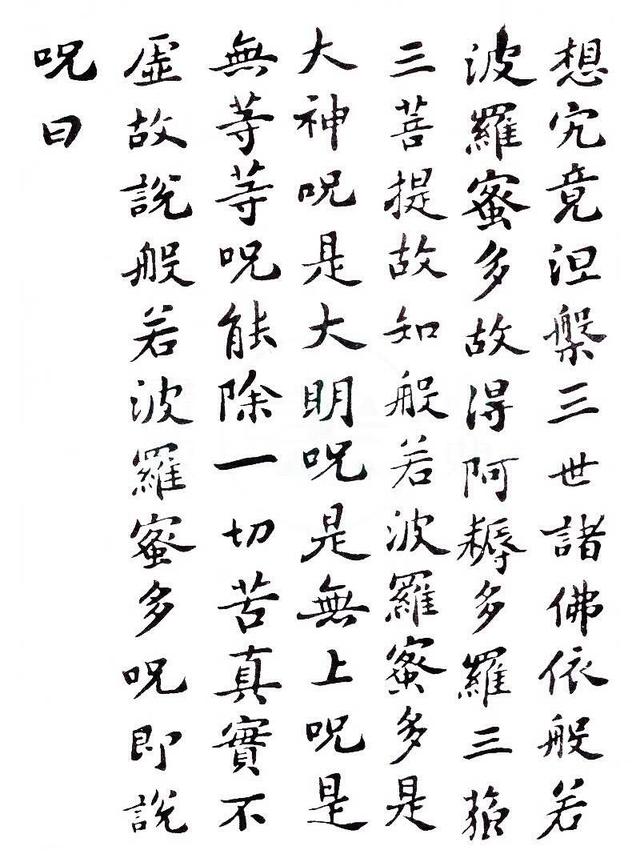 想究竟涅槃三世諸佛依般若
波羅蜜多故得阿耨多羅三藐
三菩提故知般若波羅蜜多是
大神呪是大明呪是無上呪是
無等等呪能除一切苦真實不
虛故說般若波羅蜜多呪即說
呪曰